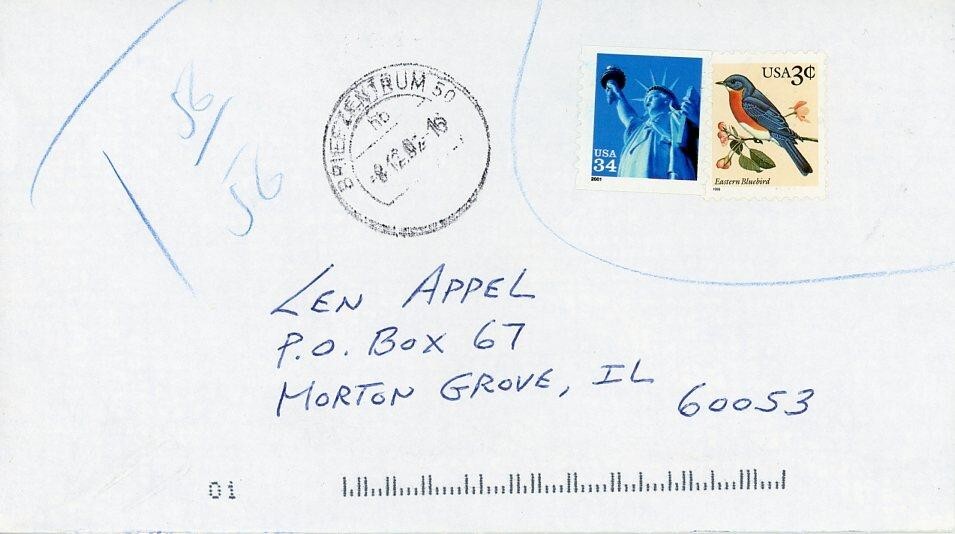 56
56
BRIEFZENTRUM 50
hb
-8.12.02-16
USA
34
2001
USA 3¢
Eastern Bluebird
LEN APPEL
P.O. BOX 67
MORTON GROVE, IL 60053
01